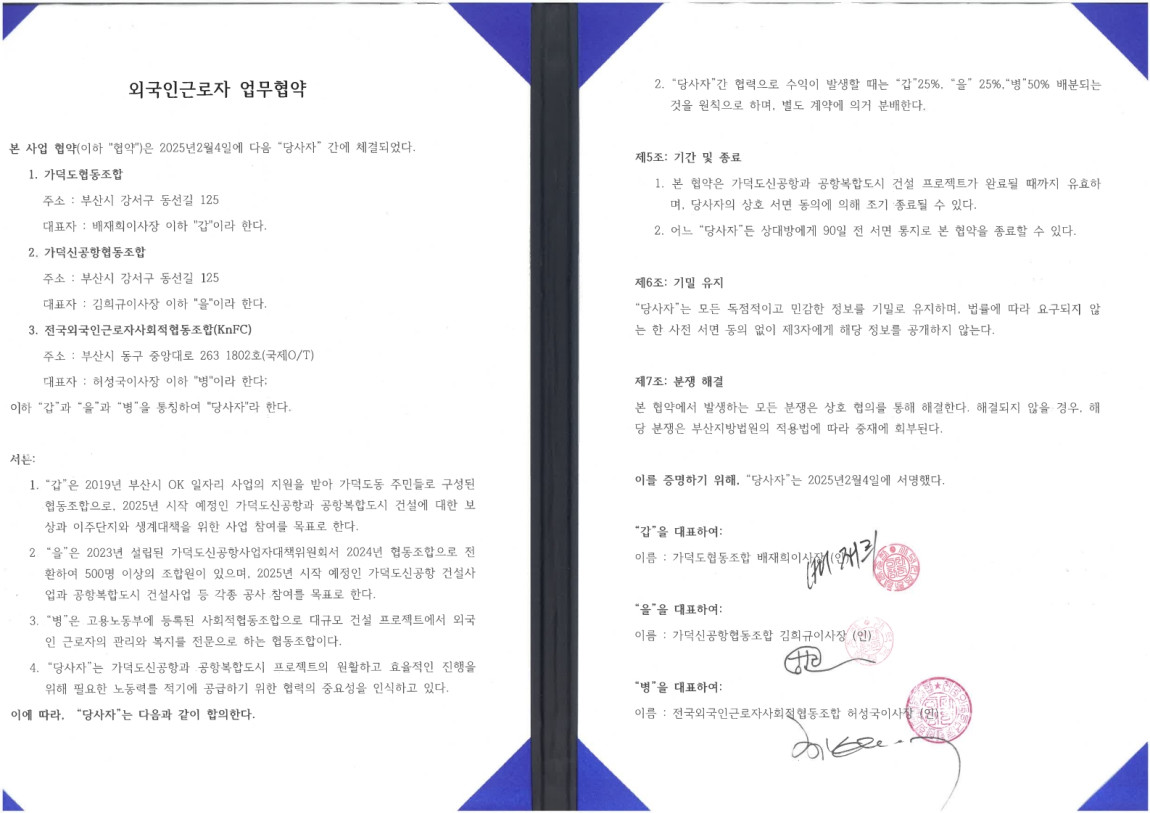 외국인근로자 업무협약
본 사업 협약(이하 "협약")은 2025년2월4일에 다음 "당사자" 간에 체결되었다.
1. 가덕도협동조합
주소 : 부산시 강서구 동선길 125
대표자 : 배재희이사장 이하 "갑"이라 한다.
2. 가덕신공항협동조합
주소 : 부산시 강서구 동선길 125
대표자 : 김희규이사장 이하 "을"이라 한다.
3. 전국외국인근로자사회적협동조합(KnFC)
주소 : 부산시 동구 중앙대로 263 1802호(국제O/T)
대표자 : 허성국이사장 이하 "병"이라 한다;
이하 "갑"과 "을"과 "병"을 통칭하여 "당사자"라 한다.
서론:
1. "갑"은 2019년 부산시 OK 일자리 사업의 지원을 받아 가덕도동 주민들로 구성된
협동조합으로, 2025년 시작 예정인 가덕도신공항과 공항복합도시 건설에 대한 보
상과 이주단지와 생계대책을 위한 사업 참여를 목표로 한다.
2 "을"은 2023년 설립된 가덕도신공항사업자대책위원회서 2024년 협동조합으로 전
환하여 500명 이상의 조합원이 있으며, 2025년 시작 예정인 가덕도신공항 건설사
업과 공항복합도시 건설사업 등 각종 공사 참여를 목표로 한다.
3. "병"은 고용노동부에 등록된 사회적협동조합으로 대규모 건설 프로젝트에서 외국
인 근로자의 관리와 복지를 전문으로 하는 협동조합이다.
4. "당사자"는 가덕도신공항과 공항복합도시 프로젝트의 원활하고 효율적인 진행을
위해 필요한 노동력를 적기에 공급하기 위한 협력의 중요성을 인식하고 있다.
이에 따라, "당사자"는 다음과 같이 합의한다.
2. "당사자"간 협력으로 수익이 발생할 때는 "갑"25%, "을" 25%,"병"50% 배분되는
것을 원칙으로 하며, 별도 계약에 의거 분배한다.
제5조: 기간 및 종료
1. 본 협약은 가덕도신공항과 공항복합도시 건설 프로젝트가 완료될 때까지 유효하
며, 당사자의 상호 서면 동의에 의해 조기 종료될 수 있다.
2. 어느 "당사자"든 상대방에게 90일 전 서면 통지로 본 협약을 종료할 수 있다.
제6조: 기밀 유지
"당사자"는 모든 독점적이고 민감한 정보를 기밀로 유지하며, 법률에 따라 요구되지 않
는 한 사전 서면 동의 없이 제3자에게 해당 정보를 공개하지 않는다.
제7조: 분쟁 해결
본 협약에서 발생하는 모든 분쟁은 상호 협의를 통해 해결한다. 해결되지 않을 경우, 해
당 분쟁은 부산지방법원의 적용법에 따라 중재에 회부된다.
이를 증명하기 위해, "당사자"는 2025년2월4일에 서명했다.
"갑"을 대표하여:
이름 : 가덕도협동조합 배재희이사장 (인)
"을"을 대표하여:
이름 : 가덕신공항협동조합 김희규이사장 (인)
"병"을 대표하여:
이름 : 전국외국인근로자사회적협동조합 허성국이사장 (인)